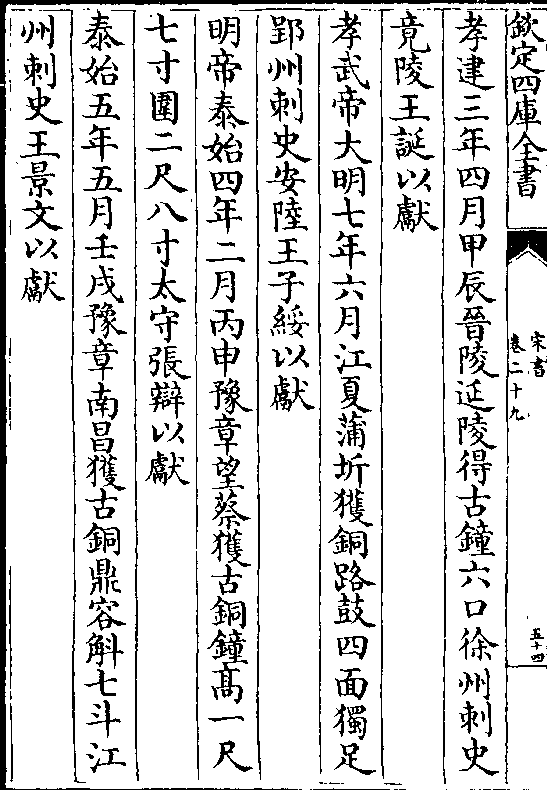 欽定四庫全書
宋書
卷二十九
五十四
孝建三年四月甲辰晉陵延陵得古鐘六口徐州刺史
竟陵王誕以獻
孝武帝大明七年六月江夏蒲圻獲銅路鼓四面獨足
郢州刺史安陸王子綏以獻
明帝泰始四年二月丙申豫章望蔡獲古銅鐘髙一尺
七寸圍二尺八寸太守張辯以獻
泰始五年五月壬戌豫章南昌獲古銅鼎容斛七斗江
州刺史王景文以獻